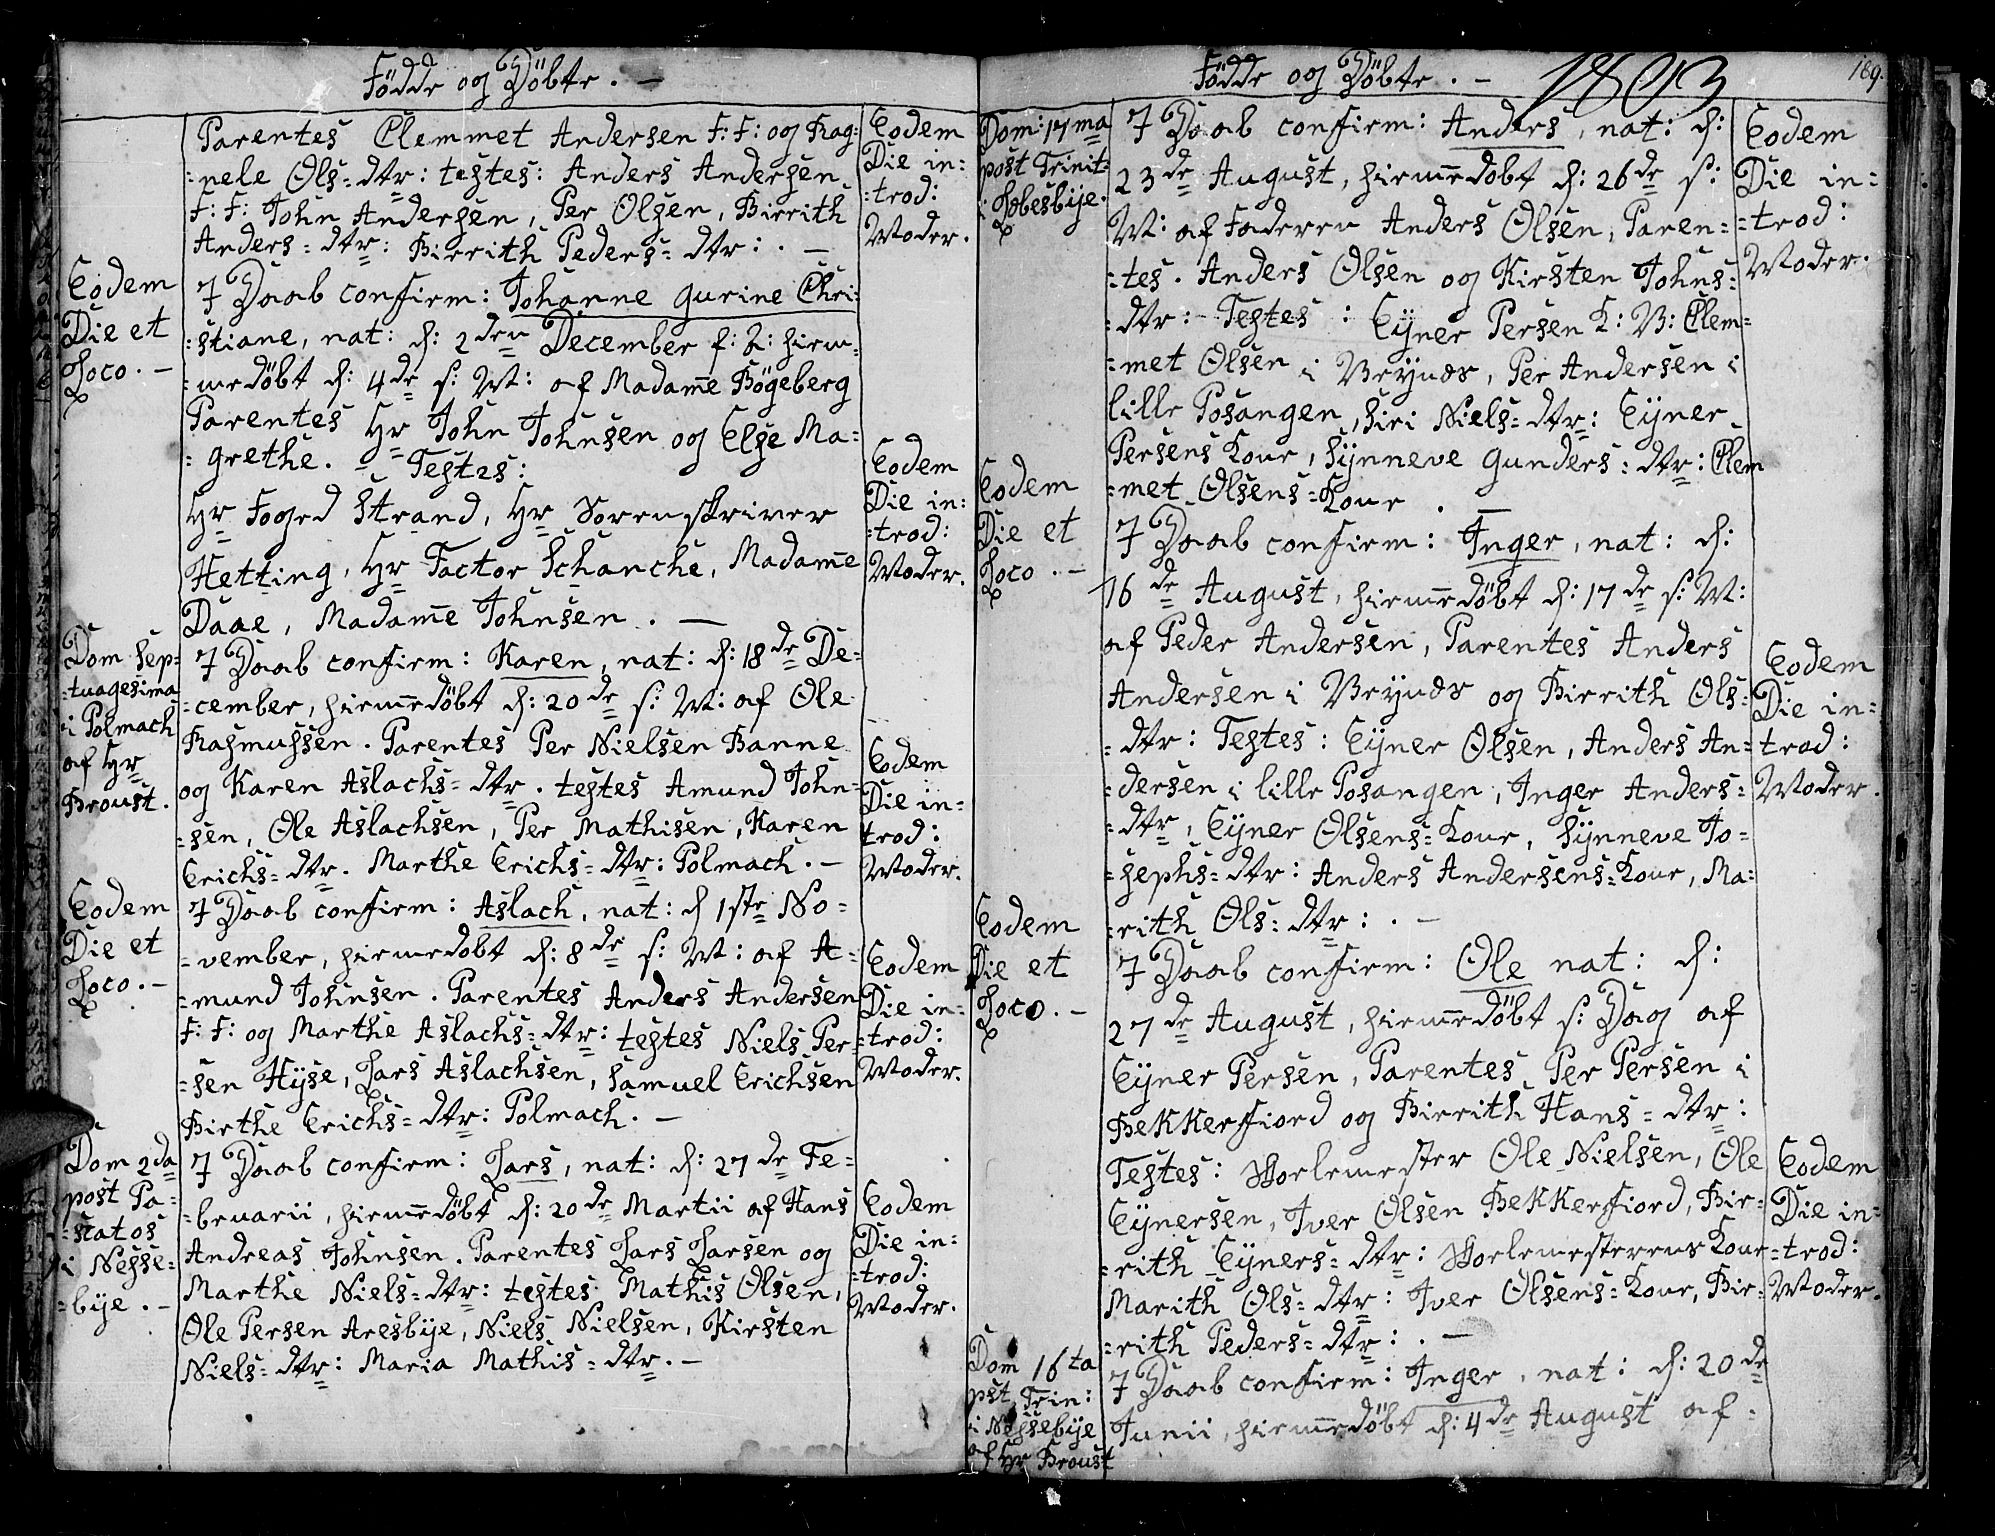 Födde og Döbte . –
Parentes Clemmet Andersen F: F: og Rag:
=nele Ols=dtr: testes: Anders Andersen
F: F: John Andersen, Per Olsen, Birrith
Anders=dtr: Birrith Peders=dtr: . –
Eodem
Die in:
=trod:
Moder.
Eodem
Die et
Loco. –
I Daab confirm: Johanne Gurine Chri:
=stiane, nat: d: 2den December f: A: hiem=
=medöbt d: 4de s: M: af Madame Bögeberg
Parentes Hr John Johnsen og Else Ma=
=grethe. – Testes:
Hr Foged Strand, Hr Sorenskriver
Hetting, Hr Factor Schanche, Madame
Daae, Madame Johnsen . –
Eodem
Die in:
=trod:
Moder.
Dom Sep=
=tuagesima
i Polmach
af Hr
Broust.
I Daab confirm: Karen, nat: d: 18de De=
=cember, hiemedöbt d: 20de s: M: af Ole
Rasmussen. Parentes Per Nielsen Banne
og Karen Aslachs=dtr. testes Amund John=
=sen, Ole Aslachsen, Per Mathisen, Karen
Erichs=dtr. Marthe Erichs=dtr: Polmach. –
Eodem
Die in=
trod:
Moder.
Eodem
Die et
Loco. –
I Daab confirm: Aslach, nat: d 1ste No=
=vember, hiemedöbt d: 8de s: M: af A=
=mund Johnsen. Parentes Anders Andersen
F: F: og Marthe Aslachs=dtr: testes Niels Per=
=sen Hÿse, Lars Aslachsen, Samuel Erichsen
Birthe Erichs=dtr: Polmach. –
Eodem
Die in=
=trod:
Moder.
Dom 2da
post Pa=
=scatos
i Nesse=
=bije. –
I Daab confirm: Lars, nat: d: 27de Fe=
=bruarii, hiemedöbt d: 20de Martii af Hans
Andreas Johnsen. Parentes Lars Larsen og
Marthe Niels=dtr: testes Mathis Olsen,
Ole Persen Aresbije, Niels Nielsen, Kirsten
Niels=dtr: Maria Mathis=dtr. –
Eodem
Die in=
=trod:
Moder.
Födde og Döbte . – 1803
189.
Dom: 17ma
post Trinit:
i Lebesbije.
I Daab confirm: Anders, nat: d:
23de August, hiemedöbt d: 26de s:
M: af Faderen Anders Olsen, Paren=
=tes. Anders Olsen og Kirsten Johns=
=dtr: Testes: Eijner Persen K: B: Clem=
=met Olsen i Brÿnds, Per Andersen i
lille Posangen, Siri Niels=dtr: Eijner
Persens Kone, Sÿnneve Gunders=dtr: Clem
=met Olsens=Kone . –
Eodem
Die in=
=trod:
Moder.
Eodem
Die et
Loco. –
I Daab confirm: Inger, nat: d:
16de August, hiemedöbt d: 17de s: M:
af Peder Andersen, Parentes Anders
Andersen i Brÿnds og Birrith Ols=
=dtr: Testes: Eijner Olsen, Anders An=
=dersen i lille Posangen, Inger Anders=
=dtr, Eijner Olsens=Kone, Sÿnneve Jo=
=sephs=dtr: Anders Andersens=Kone, Ma=
=rith Ols=dtr: . –
Eodem
Die in=
trod:
Moder.
Eodem
Die et
Loco. –
I Daab confirm: Ole nat: d:
27de August, hiemedöbt s: Dag af
Eijner Persen, Parentes Per Persen i
Bekkerfiord og Birrith Hans=dtr:
Testes: Skolemester Ole Nielsen, Ole
Eijnersen, Iver Olsen Bekkerfiord, Bir=
=rith Eijners=dtr: Skolemesterens Kone
Marith Ols=dtr: Iver Olsens=Kone, Bir=
=rith Peders=dtr: . –
Eodem
Die in=
=trod:
Moder.
Dom 16ta
pst Trin:
i Nessebije
af Hr Broust
I Daab confirm: Inger, nat: d: 20de
Junii, hiemedöbt d: 4de August af